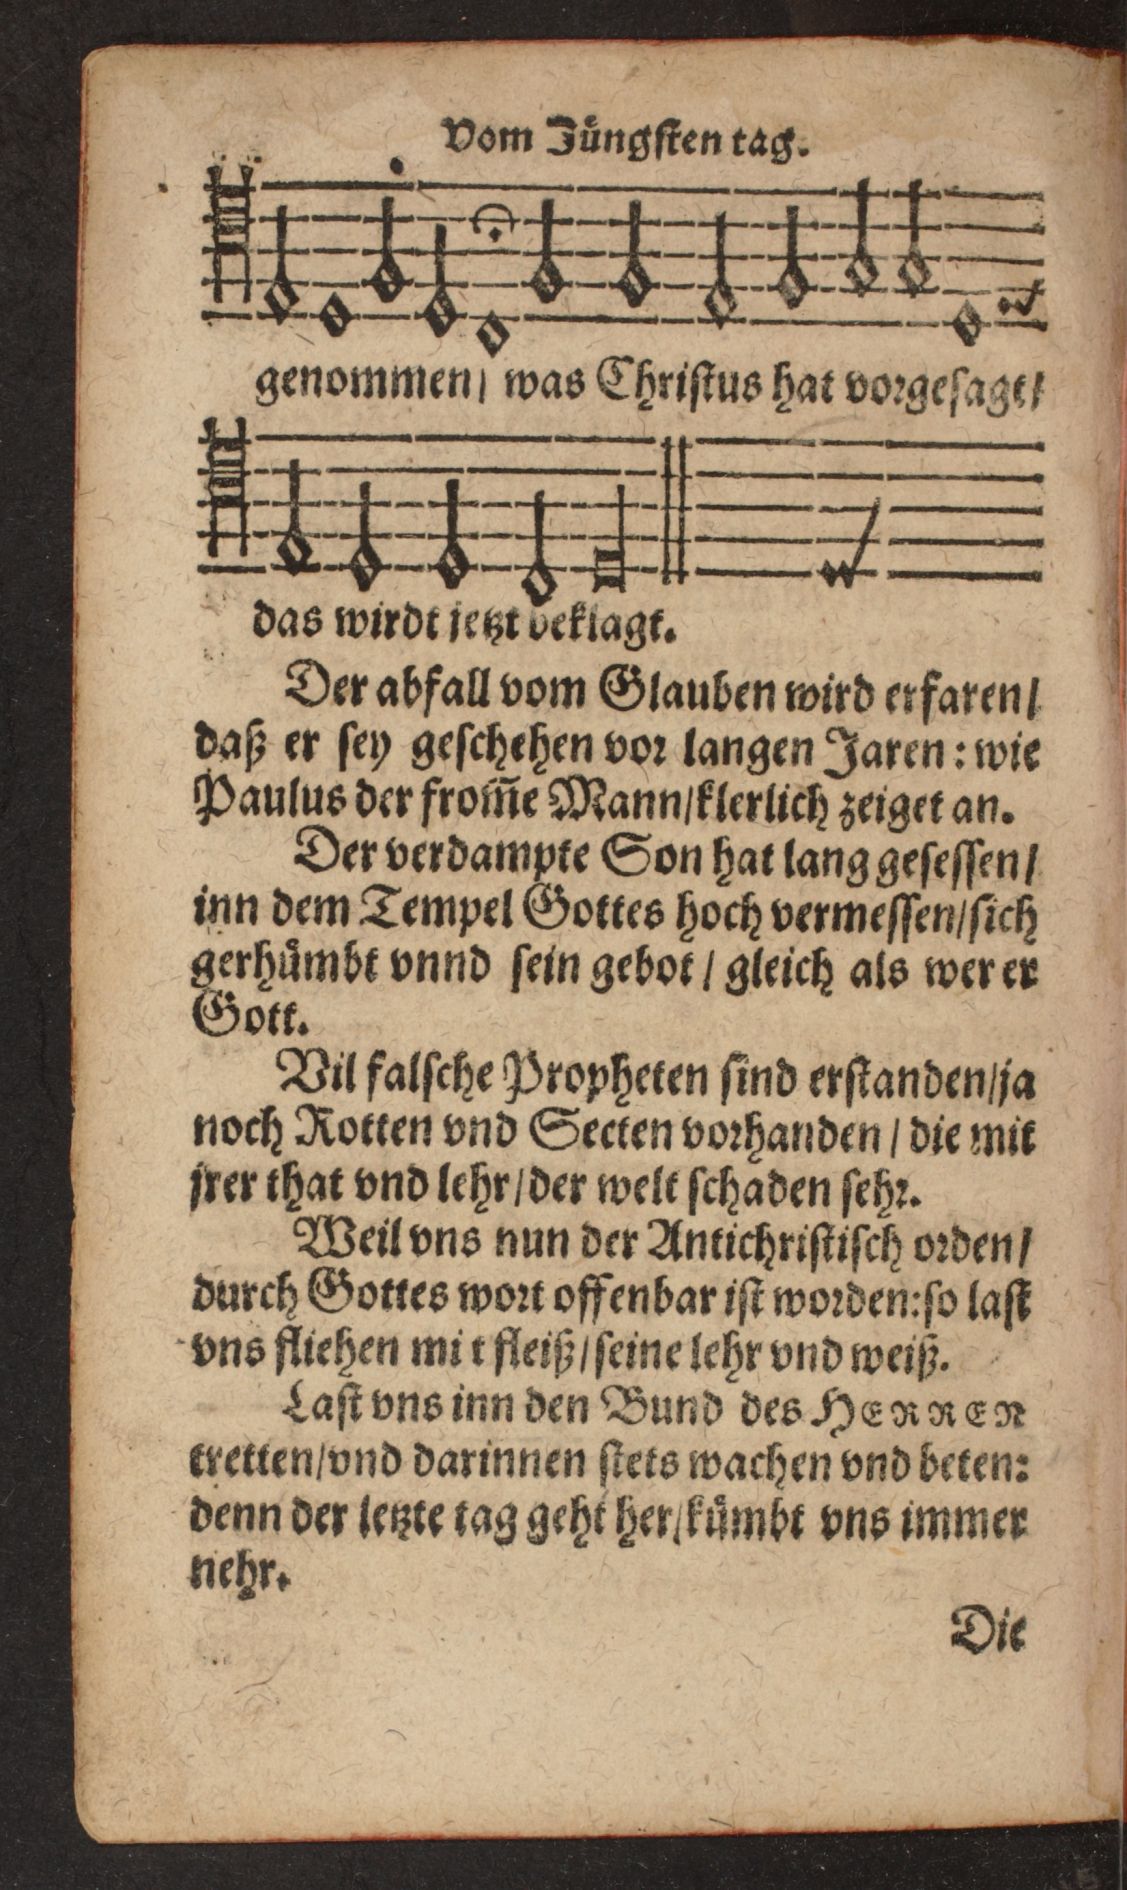 Vom Jüngsten tag.
genommen/ was Christus hat vorgesagt/
das wirdt jetzt beklagt.
Der abfall vom Glauben wird erfaren/
daß er sey geschehen vor langen Jaren: wie
Paulus der from̃e Mann/klerlich zeiget an.
Der verdampte Son hat lang gesessen/
inn dem Tempel Gottes hoch vermessen/sich
gerhuͤmbt vnnd sein gebot / gleich als wer er
Gott.
Vil falsche Propheten sind erstanden/ja
noch Rotten vnd Secten vorhanden / die mit
jrer that vnd lehr/der welt schaden sehr.
Weil vns nun der Antichristisch orden/
durch Gottes wort offenbar ist worden:so last
vns fliehen mit fleiß/seine lehr vnd weiß.
Last vns inn den Bund des HERREN
tretten/vnd darinnen stets wachen vnd beten:
denn der letzte tag geht her/kuͤmbt vns immer
nehr.
Die